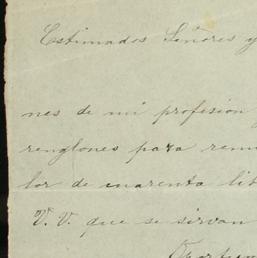 Estimados Señores y
nes de mi profesion y
renglones para remi
lor de cuarenta lit
V. V. que se sirvan